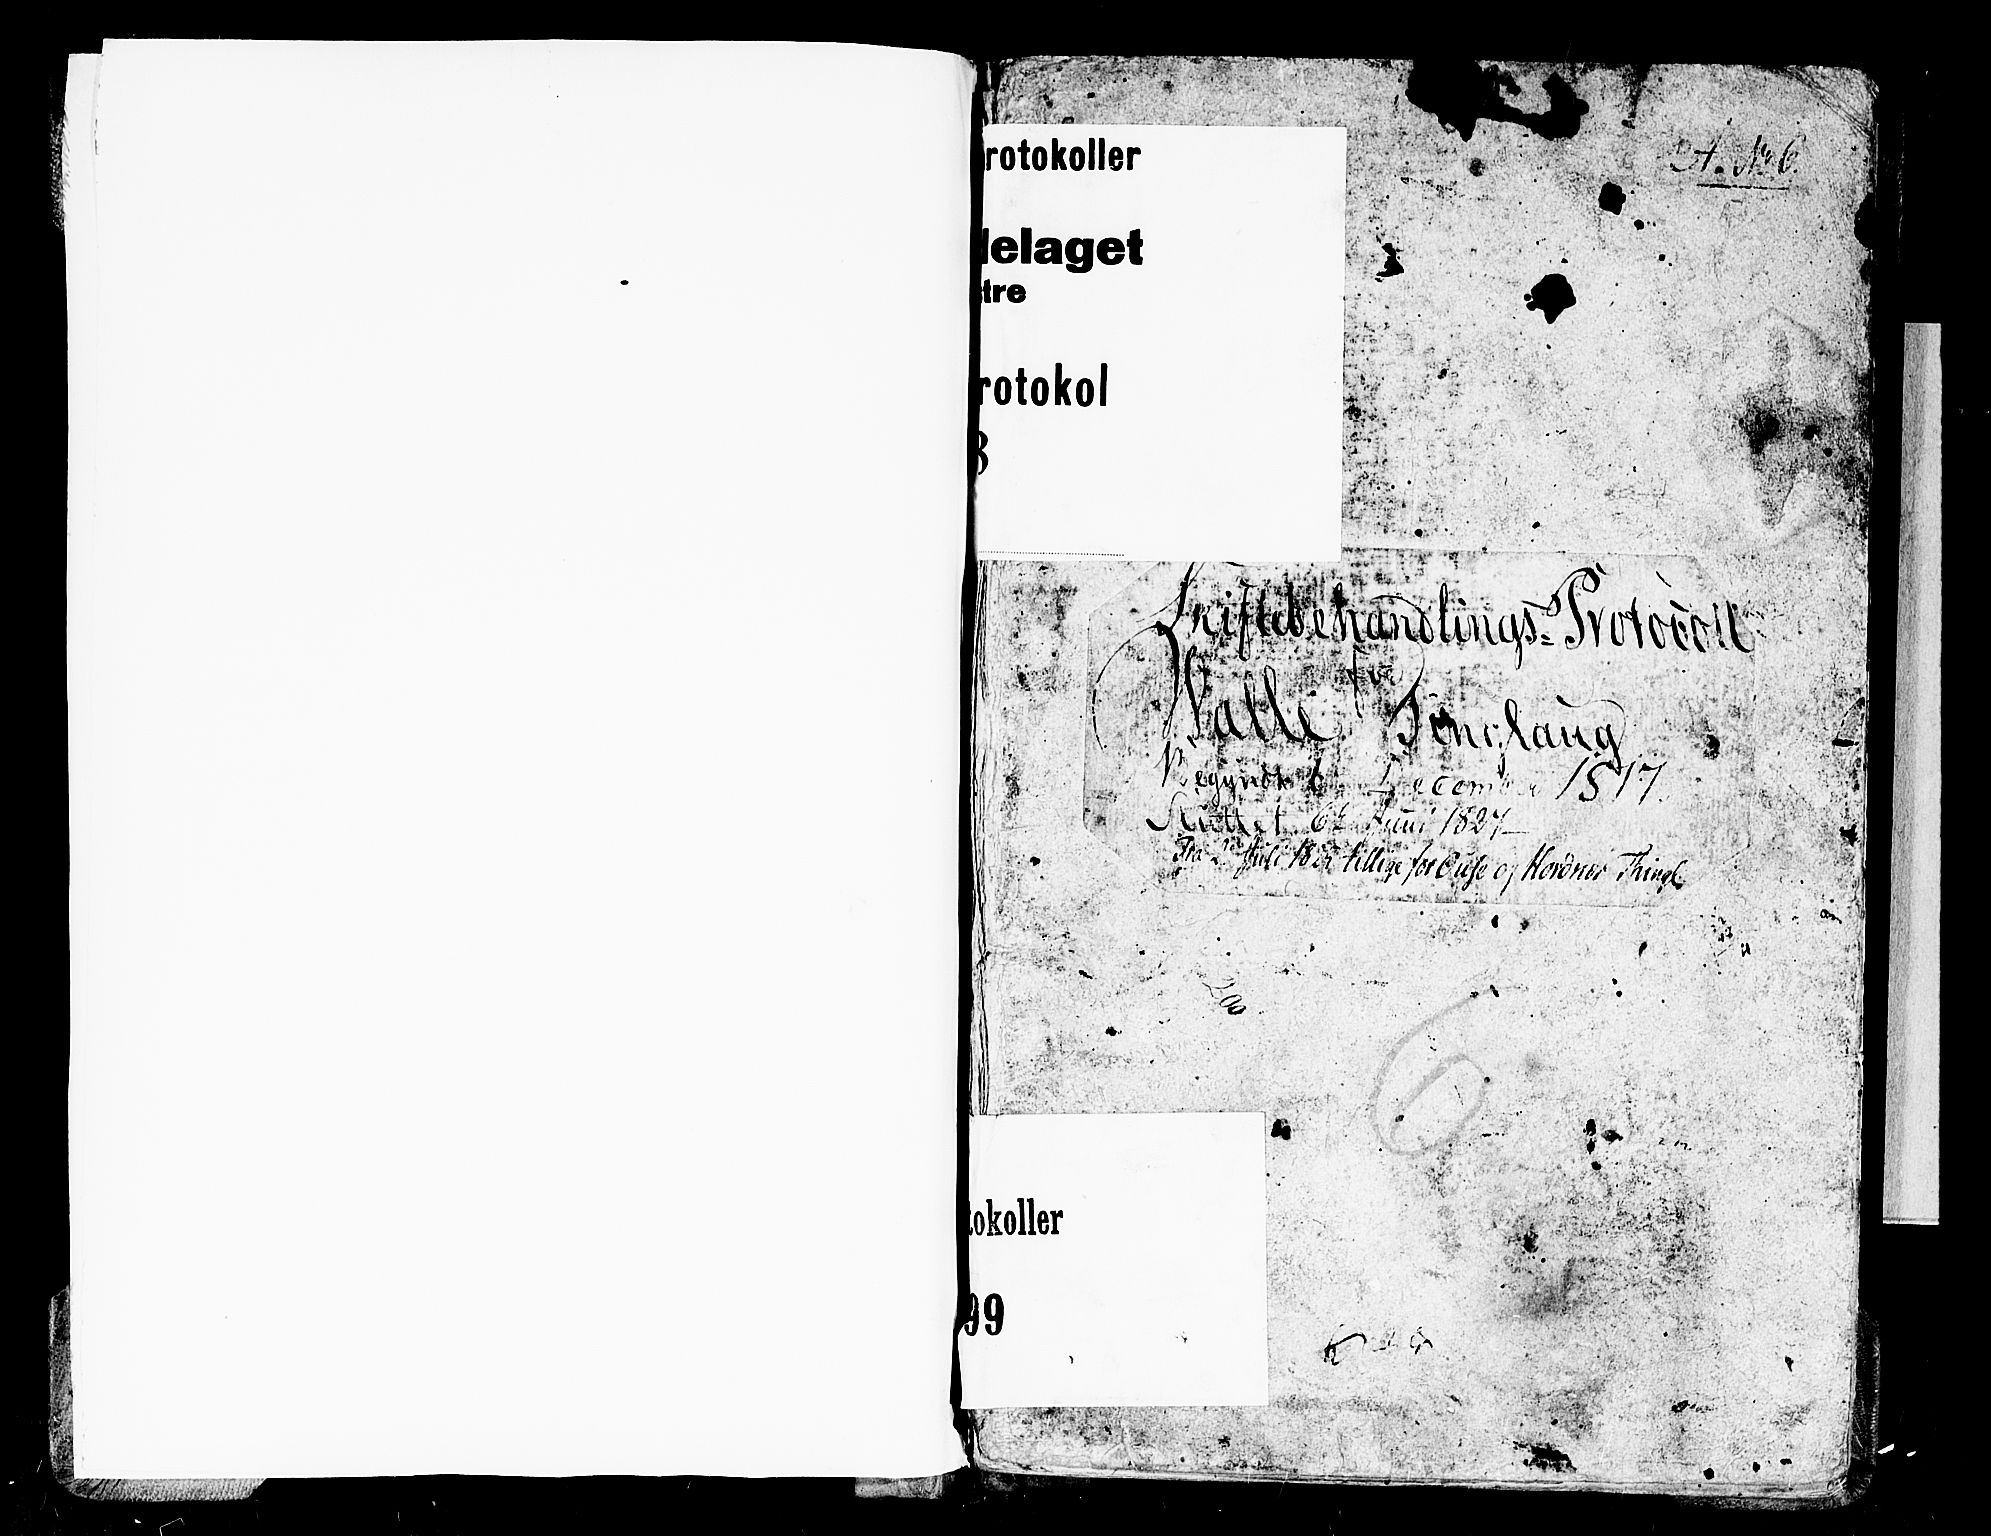 A. No 6.
rotokoller
delaget
tre
rotokol
8
Skiftebehandlings-Protocoll
for
Valle Tinglaug
Begyndt December 1817.
Sluttet 6t Juni 1827
Fra Juli 1822 tillige for Øuse og Hordnes Thingl
200
6
tokoller
99